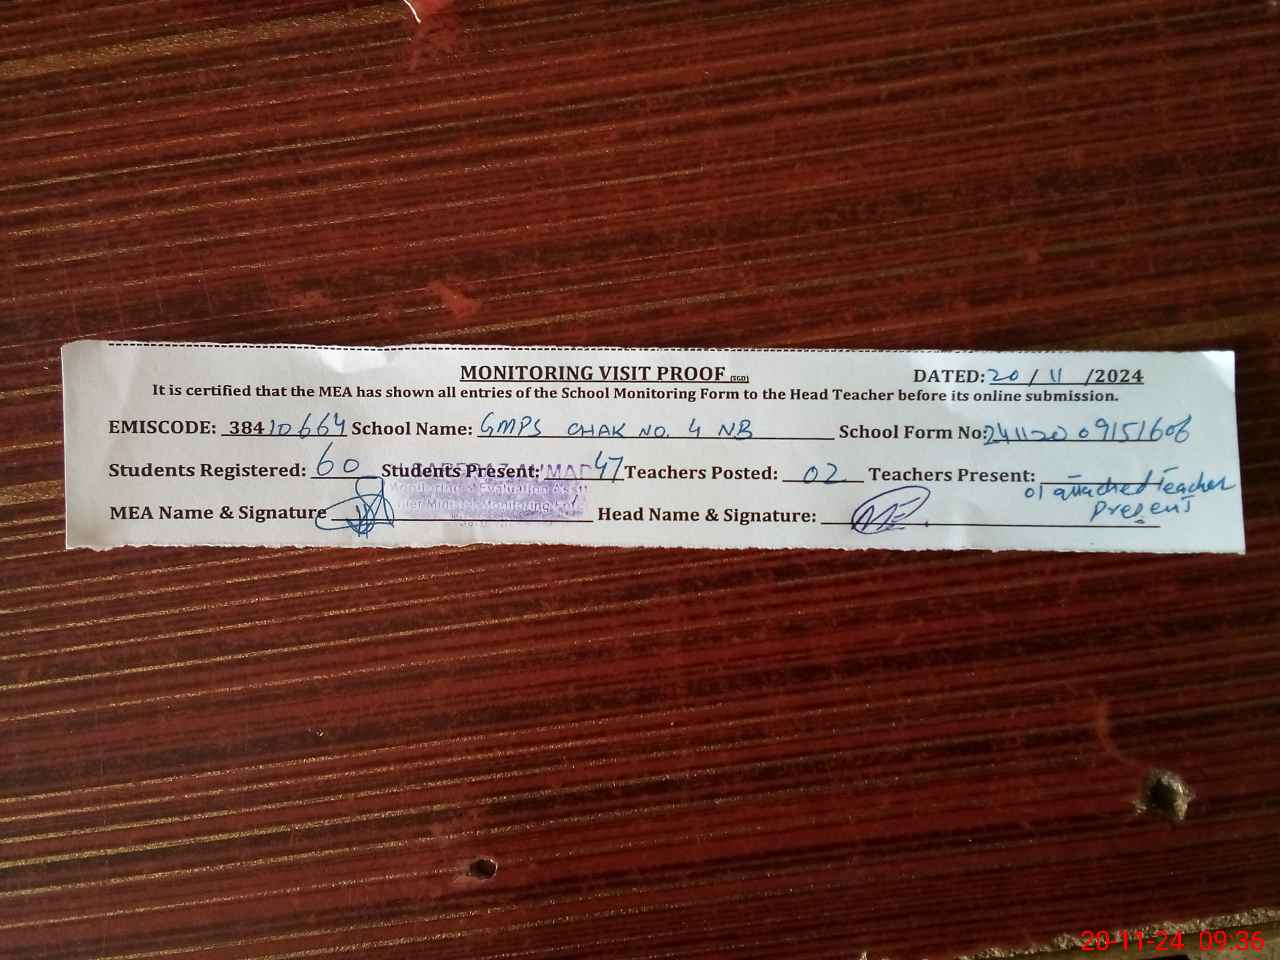 MONITORING VISIT PROOF (SGD)
DATED: 20 / 11 /2024
It is certified that the MEA has shown all entries of the School Monitoring Form to the Head Teacher before its online submission.
EMISCODE: 38410664 School Name: GMPS CHAK NO. 4 NB School Form No: 24112009151606
Students Registered: 60 Students Present: 47 Teachers Posted: 02 Teachers Present:
01 attached teacher
Present
Monitoring & Evaluation
MEA Name & Signature Head Name & Signature:
20-11-24 09:36